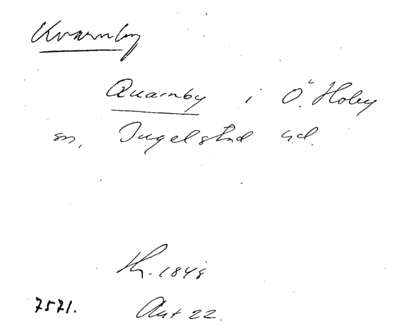 Kvarnby
Quarnby i Ö. Hoby
sn, Ingelstad hd.
Th. 1848
7571. Ant 22.